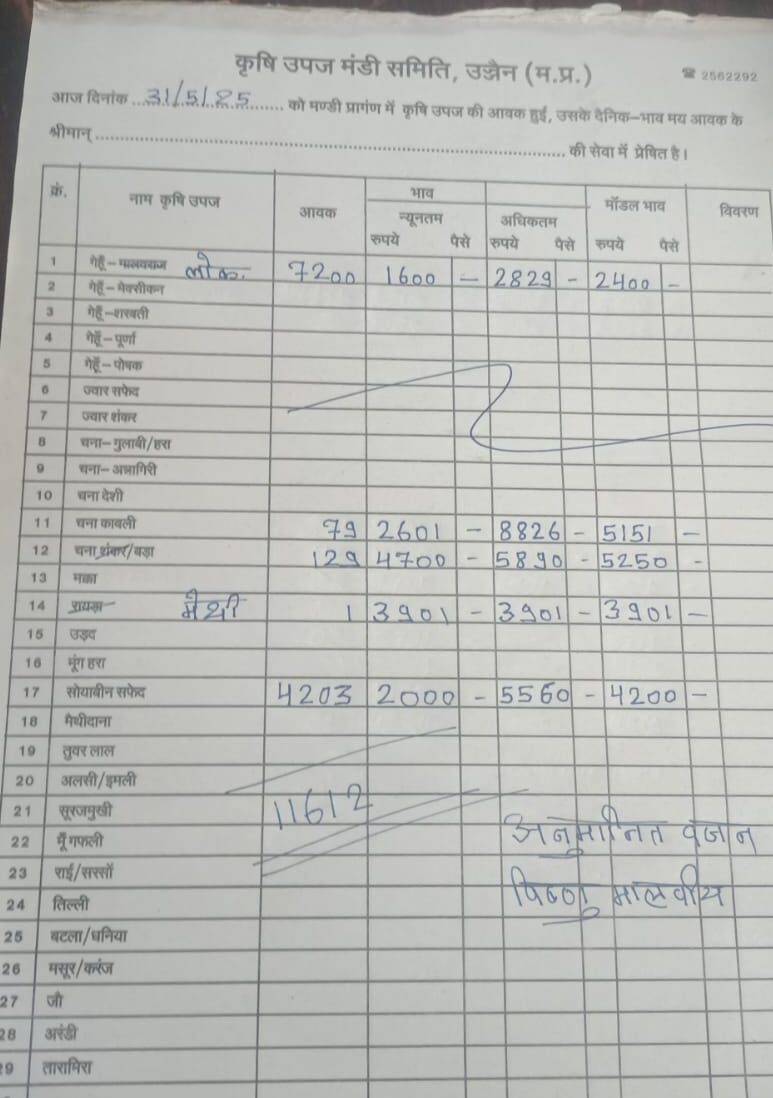 कृषि उपज मंडी समिति, उज्जैन (म.प्र.)
☎ 2562292
आज दिनांक ...31/5/25... को मण्डी प्रागंण में कृषि उपज की आवक हुई, उसके दैनिक–भाव मय आवक के
श्रीमान् ........................ की सेवा में प्रेषित है।
क्रं. नाम कृषि उपज आवक भाव मॉडल भाव विवरण
न्यूनतम अधिकतम
रुपये पैसे रुपये पैसे रुपये पैसे
1 गेहूँ–मालवराज लोक. 7200 1600 – 2829 – 2400 –
2 गेहूँ–मेक्सीकन
3 गेहूँ–शरबती
4 गेहूँ–पूर्णा
5 गेहूँ–पोषक
6 ज्वार सफेद
7 ज्वार शंकर
8 चना–गुलाबी/हरा
9 चना–अन्नागिरी
10 चना देशी
11 चना काबली 79 2601 – 8826 – 5151 –
12 चना शंकर/बड़ा 129 4700 – 5890 – 5250 –
13 मक्का
14 रायड़ा मैथी 1 3901 – 3901 – 3901 –
15 उड़द
16 मूंग हरा
17 सोयाबीन सफेद 4203 2000 – 5560 – 4200 –
18 मैथीदाना
19 तुवर लाल
20 अलसी/इमली
21 सूरजमुखी 11612
22 मूँगफली अनुमानित वजन
23 राई/सरसों
24 तिल्ली विष्णु मालवीय
25 बटला/धनिया
26 मसूर/करंज
27 जौ
28 अरंडी
29 तारामिरा